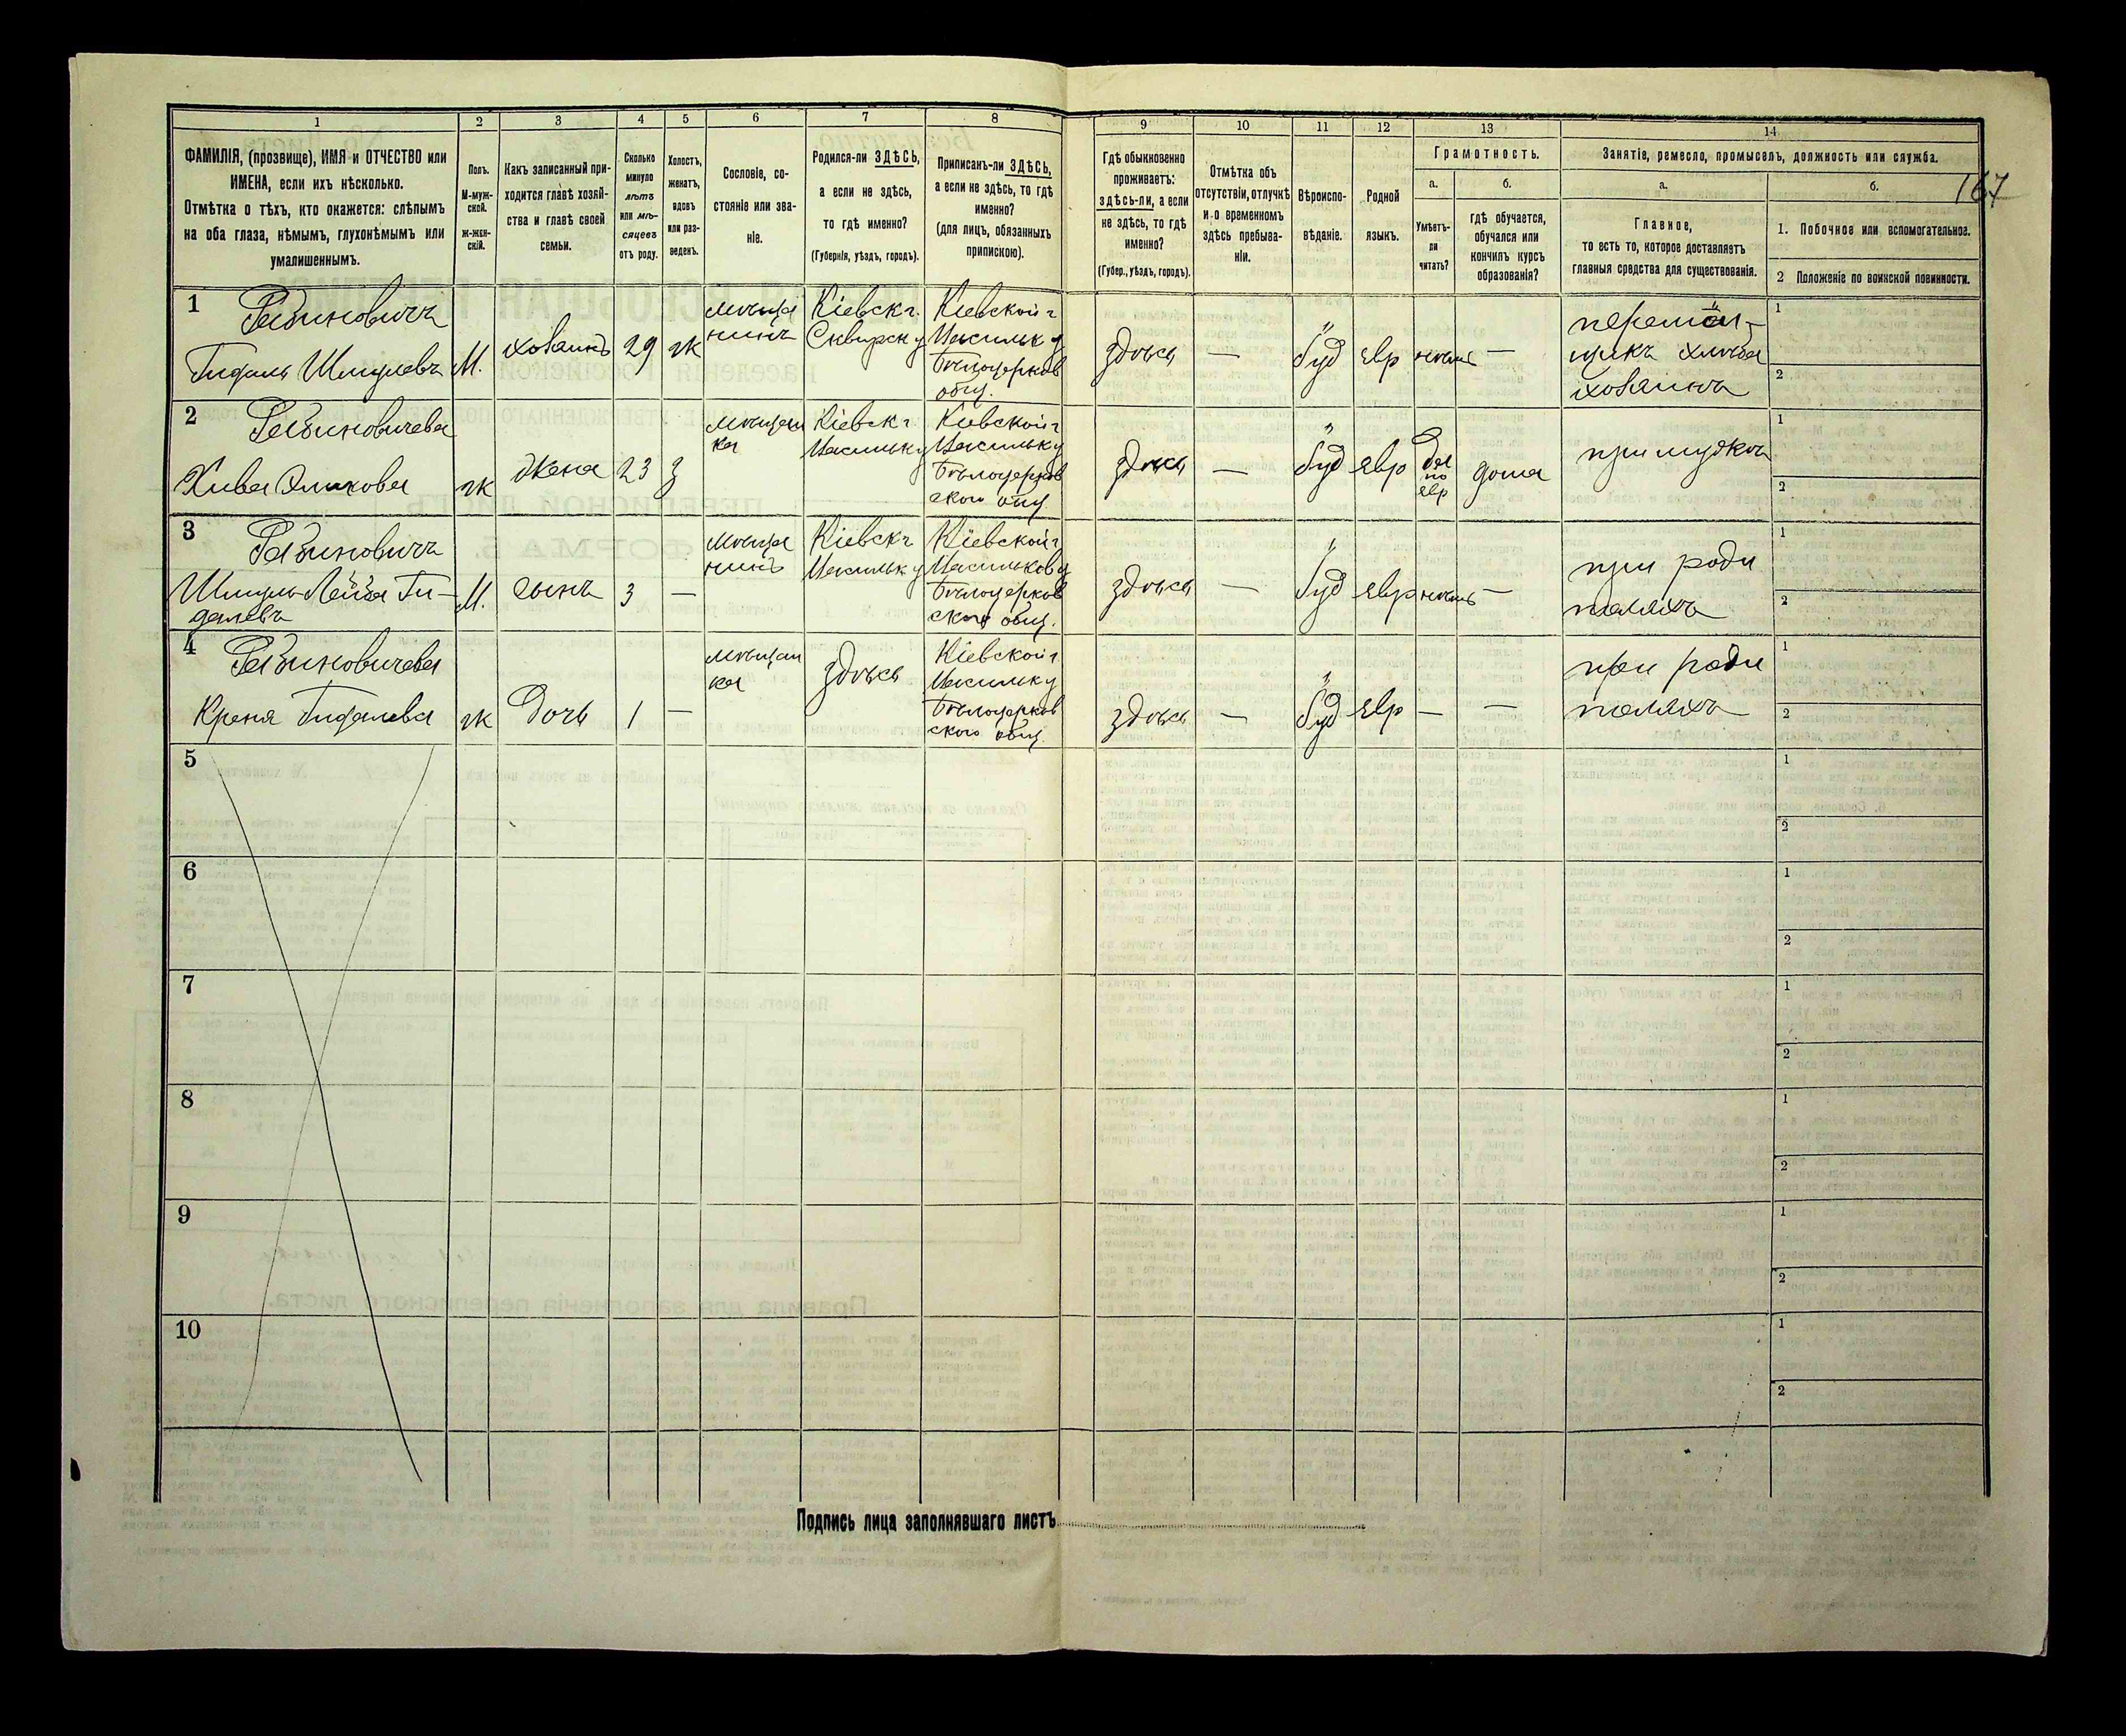 1 2 3 4 5 6 7 8 9 10 11 12 13 14
ФАМИЛІЯ, (прозвище), ИМЯ и ОТЧЕСТВО или
ИМЕНА, если ихъ нѣсколько.
Отмѣтка о тѣхъ, кто окажется: слѣпымъ
на оба глаза, нѣмымъ, глухонѣмымъ или
умалишеннымъ.
Полъ.
М-муж-
ской.
ж-жен-
скій.
Какъ записанный при-
ходится главѣ хозяй-
ства и главѣ своей
семьи.
Сколько
минуло
лѣтъ
или мѣ-
сяцевъ
отъ роду.
Холостъ,
женатъ,
вдовъ
или раз-
веденъ.
Сословіе, со-
стояніе или зва-
ніе.
Родился-ли ЗДѢСЬ,
а если не здѣсь,
то гдѣ именно?
(Губернія, уѣздъ, городъ).
Приписанъ-ли ЗДѢСЬ,
а если не здѣсь, то гдѣ
именно?
(для лицъ, обязанныхъ
припискою).
Гдѣ обыкновенно
проживаетъ:
здѣсь-ли, а если
не здѣсь, то гдѣ
именно?
(Губер., уѣздъ, городъ).
Отмѣтка объ
отсутствіи, отлучкѣ
и о временномъ
здѣсь пребыва-
ніи.
Вѣроиспо-
вѣданіе.
Родной
языкъ.
Грамотность.
а.
Умѣетъ-
ли
читать?
б.
гдѣ обучается,
обучался или
кончилъ курсъ
образованія?
Занятіе, ремесло, промыселъ, должность или служба.
а.
Главное,
то есть то, которое доставляетъ
главныя средства для существованія.
б.
1. Побочное или вспомогательное.
2 Положеніе по воинской повинности.
167
1
Рабиновичъ
Гидаль Шмулевъ
М.
хозяинъ
29
ж
мѣща
нинъ
Кіевск г.
Сквирск у
Кіевской г
Васильк у
Бѣлоцерков
общ.
здѣсь
—
іуд
евр
нѣтъ
—
хлѣба
хозяинъ
1
2
2
Рабиновичева
Хива
ж
жена
23
з
мѣщан
ка
Кіевск г
Васильк у
Кіевской г
Васильк у
Бѣлоцерков
ского общ
здѣсь
—
іуд
евр
да
по
евр
дома
при мужѣ
1
2
3
Рабиновичъ
Шмуль-Лейба Ги-
далевъ
М.
сынъ
3
—
мѣща
нинъ
Кіевск г
Васильк у
Кіевской г
Васильков у
Бѣлоцерков
ского общ.
здѣсь
—
іуд
евр
нѣтъ
—
при роди
теляхъ
1
2
4
Рабиновичева
Креня Гидалева
ж
дочь
1
—
мѣщан
ка
здѣсь
Кіевской г
Васильк у
Бѣлоцерков
ского общ.
здѣсь
—
іуд
евр
—
—
при роди
теляхъ
1
2
5
1
2
6
1
2
7
1
2
8
1
2
9
1
2
10
1
2
Подпись лица заполнявшаго листъ